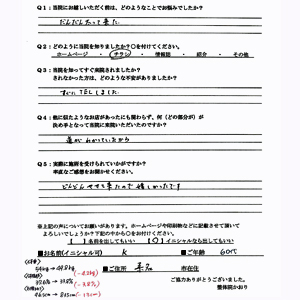 Q1：当院にお越しいただく前は、どのようなことでお悩みでしたか？
だんだん太って来た
Q2：どのように当院を知りましたか？○を付けてください。
ホームページ ・ チラシ ・ 情報誌 ・ 紹介 ・ その他
Q3：当院を知ってすぐ来院されましたか？
されなかった方は、どのような不安がありましたか？
すぐにTELしました
Q4：他に似たようなお店があったにも関わらず、何（どの部分が）が
決め手となって当院に来院いただいたのですか？
Q5：実際に施術を受けられていかがですか？
率直なご感想をお聞かせください。
どんどんヤセて来たので嬉しかったです
※上記の声についてお願いがあります。ホームページや印刷物などに記載させて頂いて
よろしいでしょうか？下記の中から○をお付けください。
【 】名前を出してもいい 【○】イニシャルなら出してもいい
■お名前(イニシャル可) K ■ご年齢 60代
■ご住所 市在住
ご協力ありがとうございました。
整体院